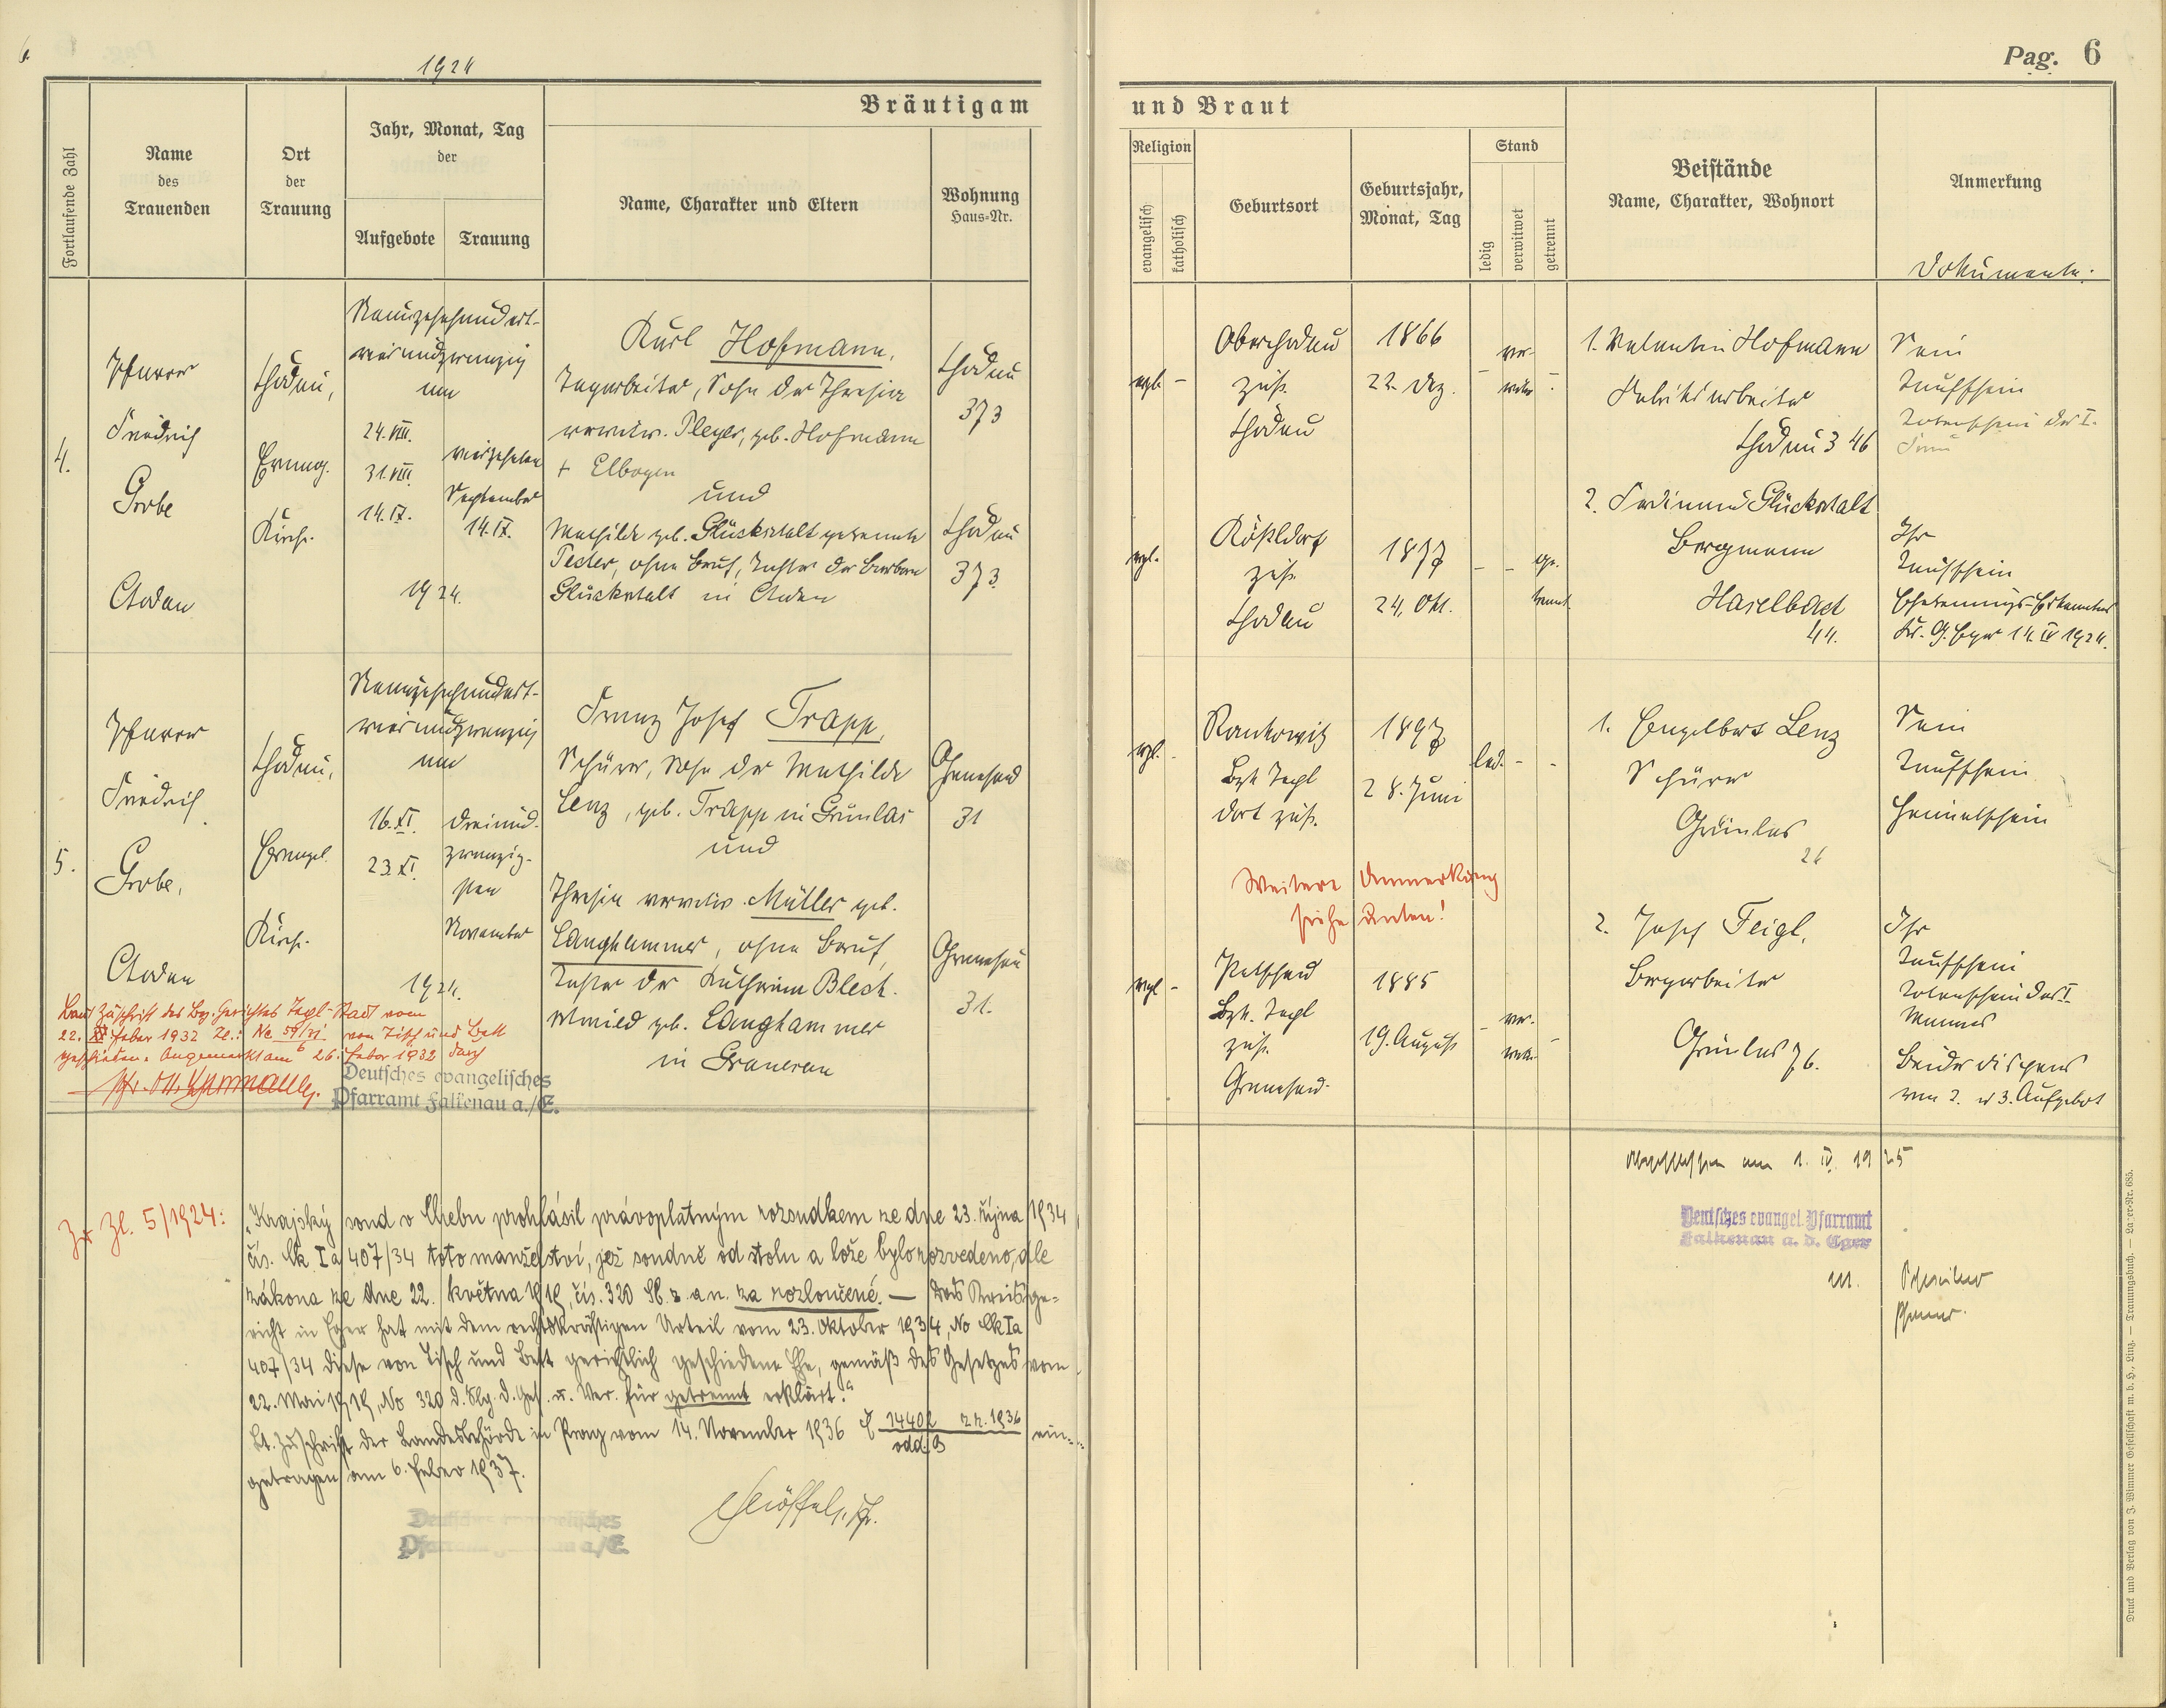 6.
1924
Pag. 6
Bräutigam und Braut
Fortlaufende Zahl
Name
des
Trauenden
Ort
der
Trauung
Jahr, Monat, Tag
der
Aufgebote
Trauung
Name, Charakter und Eltern
Wohnung
Haus-Nr.
Religion
evangelisch
katholisch
Geburtsort
Geburtsjahr,
Monat, Tag
Stand
ledig
verwitwet
getrennt
Beistände
Name, Charakter, Wohnort
Anmerkung
Dokumente.
4.
Pfarrer
Friedrich
Grobe
Chodau
Chodau,
Evang.
Kirche.
Neunzehnhundert-
vierundzwanzig
am
24. VIII.
31. VIII.
14. IX.
vierzehnten
September
14. IX.
1924.
Karl Hofmann,
Tagarbeiter, Sohn der Theresia
verwitw. Pleyer, geb. Hofmann
+ Elbogen
und
Mathilde geb. Glückstalt getrennte
Pecher, ohne Beruf, Tochter der Barbara
Glückstalt in Chodau
Chodau
373
Chodau
373
evgl. -
Oberchodau
zust.
Chodau
1866
22. Dez.
- ver-
witw. -
evgl.
Rößldorf
zust.
Chodau
1877
24. Okt.
- - ge-
trennt
1. Valentin Hofmann
Fabriksarbeiter
Chodau 346
2. Ferdinand Glückstalt
Bergmann
Haselbach
44.
Sein
Taufschein
Totenschein der I.
Frau
Ihr
Taufschein
Ehetrennungs-Erkenntnis
Kr. G. Eger 14. IV 1924.
5.
Pfarrer
Friedrich
Grobe,
Chodau
Chodau,
Evangel.
Kirche.
Neunzehnhundert-
vierundzwanzig
am
16. XI.
23. XI.
dreiund-
zwanzig-
sten
November
1924.
Franz Josef Trapp,
Schürer, Sohn der Mathilde
Lenz, geb. Trapp in Grünlas
und
Theresia verwitw. Müller geb.
Langhammer, ohne Beruf,
Tochter der Katharina Blech-
schmied geb. Langhammer
in Granesau
Granesau
31
Granesau
31.
evgl. -
Rankowitz
Bzk Tepl
dort zust.
1897
28. Juni
led. - -
Weitere Anmerkung
siehe unten!
evgl -
Petschau
Bzk. Tepl
zust.
Granesau-
1885
19. August
- ver-
witw. -
1. Engelbert Lenz
Schürer
Grünlas
26
2. Josef Feigl,
Bergarbeiter
Grünlas 76.
Sein
Taufschein
Heimatschein
Ihr
Taufschein
Totenschein des I.
Mannes
Beider dispens
vom 2. u 3. Aufgebot
Laut Zuschrift des Bez. Gerichtes Tepl-Stadt vom
22. Feber 1932 Zl.: Nc 59/31 von Tisch und Bett
geschieden. Angemerkt am 26. Feber 1932 durch
Deutsches evangelisches
Pfarramt Falkenau a./E.
Zu Zl. 5/1924:
"Krajský soud v Chebu prohlásil právoplatným rozsudkem ze dne 23. října 1934,
čís. Ck Ia 407/34 toto manželství, jež soudně od stolu a lože bylo rozvedeno, dle
zákona ze dne 22. května 1919, čís. 320 Sb. z. a n. za rozloučené. — Das Kreisge-
richt in Eger hat mit dem rechtskräftigen Urteil vom 23. Oktober 1934, No Ck Ia
407/34 diese von Tisch und Bett gerichtlich geschiedene Ehe, gemäß des Gesetzes vom
22. Mai 1919, No 320 d. Slg. d. Ges. u. Ver. für getrennt erklärt."
Lt. Zuschrift der Landesbehörde in Prag vom 14. November 1936 Č 14402 zz. 1936 ein-
odd. B
getragen am 6. Feber 1937.
Abgeschlossen am 1. IV. 1925
Deutsches evangel. Pfarramt
Falkenau a. d. Eger
Pfarrer.
Druck und Verlag von J. Wimmer Gesellschaft m. b. H., Linz. — Trauungsbuch. — Lager-Nr. 685.